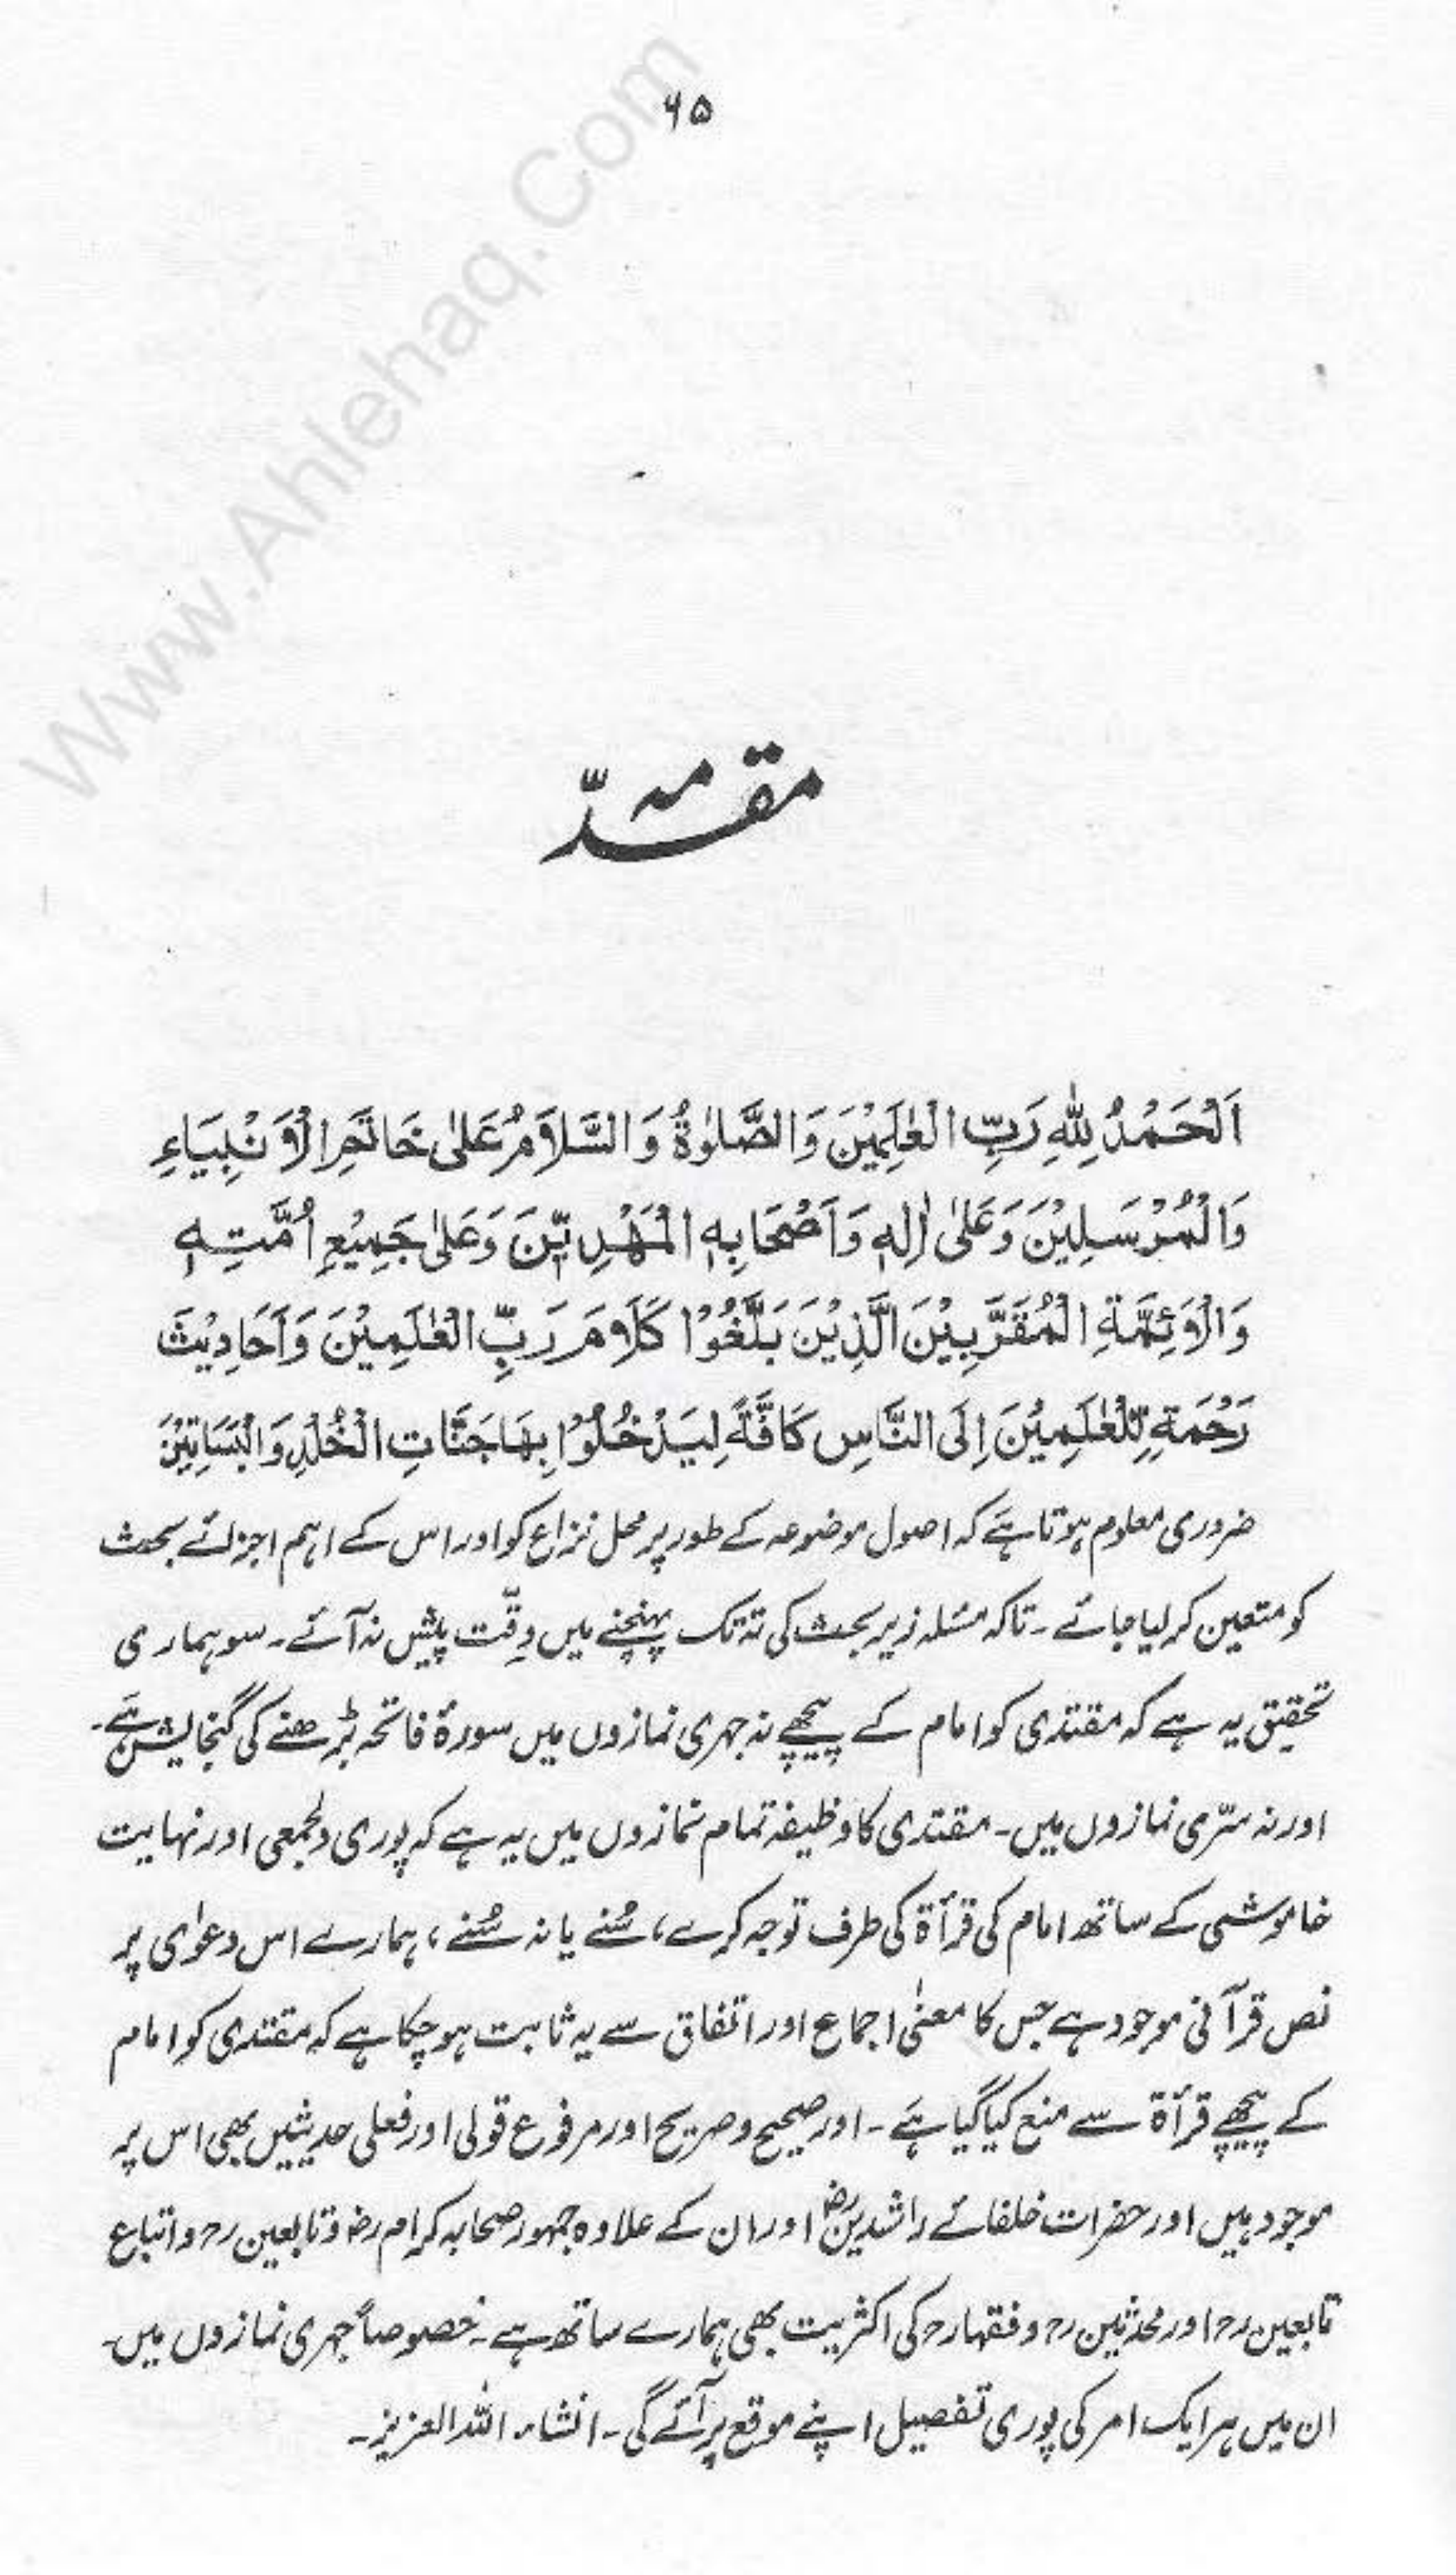 ۶۵
Www.Ahlehaq.Com
مقدّمہ
اَلْحَمْدُ لِلّٰهِ رَبِّ الْعٰلَمِيْنَ وَالصَّلٰوةُ وَالسَّلَامُ عَلٰى خَاتَمِ الْاَنْبِيَاءِ
وَالْمُرْسَلِيْنَ وَعَلٰى اٰلِهٖ وَاَصْحَابِهِ الْمَهْدِيِّيْنَ وَعَلٰى جَمِيْعِ اُمَّتِهٖ
وَالْاَئِمَّةِ الْمُقَرَّبِيْنَ الَّذِيْنَ بَلَّغُوْا كَلَامَ رَبِّ الْعٰلَمِيْنَ وَاَحَادِيْثَ
رَحْمَةٍ لِّلْعٰلَمِيْنَ اِلَى النَّاسِ كَافَّةً لِيَدْخُلُوْا بِهَا جَنَّاتِ الْخُلْدِ وَالْبَسَاتِيْنَ
ضروری معلوم ہوتا ہے کہ اصول موضوعہ کے طور پر محل نزاع کو اور اس کے اہم اجزائے بحث
کو متعین کر لیا جائے ۔ تاکہ مسئلہ زیر بحث کی تہ تک پہنچنے میں دِقّت پیش نہ آئے ۔ سو ہماری
تحقیق یہ ہے کہ مقتدی کو امام کے پیچھے نہ جہری نمازوں میں سورۂ فاتحہ پڑھنے کی گنجایش ہے ۔
اور نہ سرّی نمازوں میں ۔ مقتدی کا وظیفہ تمام نمازوں میں یہ ہے کہ پوری دلجمعی اور نہایت
خاموشی کے ساتھ امام کی قرأۃ کی طرف توجہ کرے ، سُنے یا نہ سُنے ، ہمارے اس دعوٰی پر
نص قرآنی موجود ہے جس کا معنٰی اجماع اور اتفاق سے یہ ثابت ہو چکا ہے کہ مقتدی کو امام
کے پیچھے قرأۃ سے منع کیا گیا ہے ۔ اور صحیح و صریح اور مرفوع قولی اور فعلی حدیثیں بھی اس پر
موجود ہیں اور حضرات خلفائے راشدینؓ اور ان کے علاوہ جمہور صحابہ کرام رضؓ و تابعین رحؒ و اتباع
تابعین رحؒ اور محدثین رحؒ و فقہاء رحؒ کی اکثریت بھی ہمارے ساتھ ہے ۔ خصوصاً جہری نمازوں میں ۔
ان میں ہر ایک امر کی پوری تفصیل اپنے موقع پر آئے گی ۔ انشاء اللہ العزیز ۔